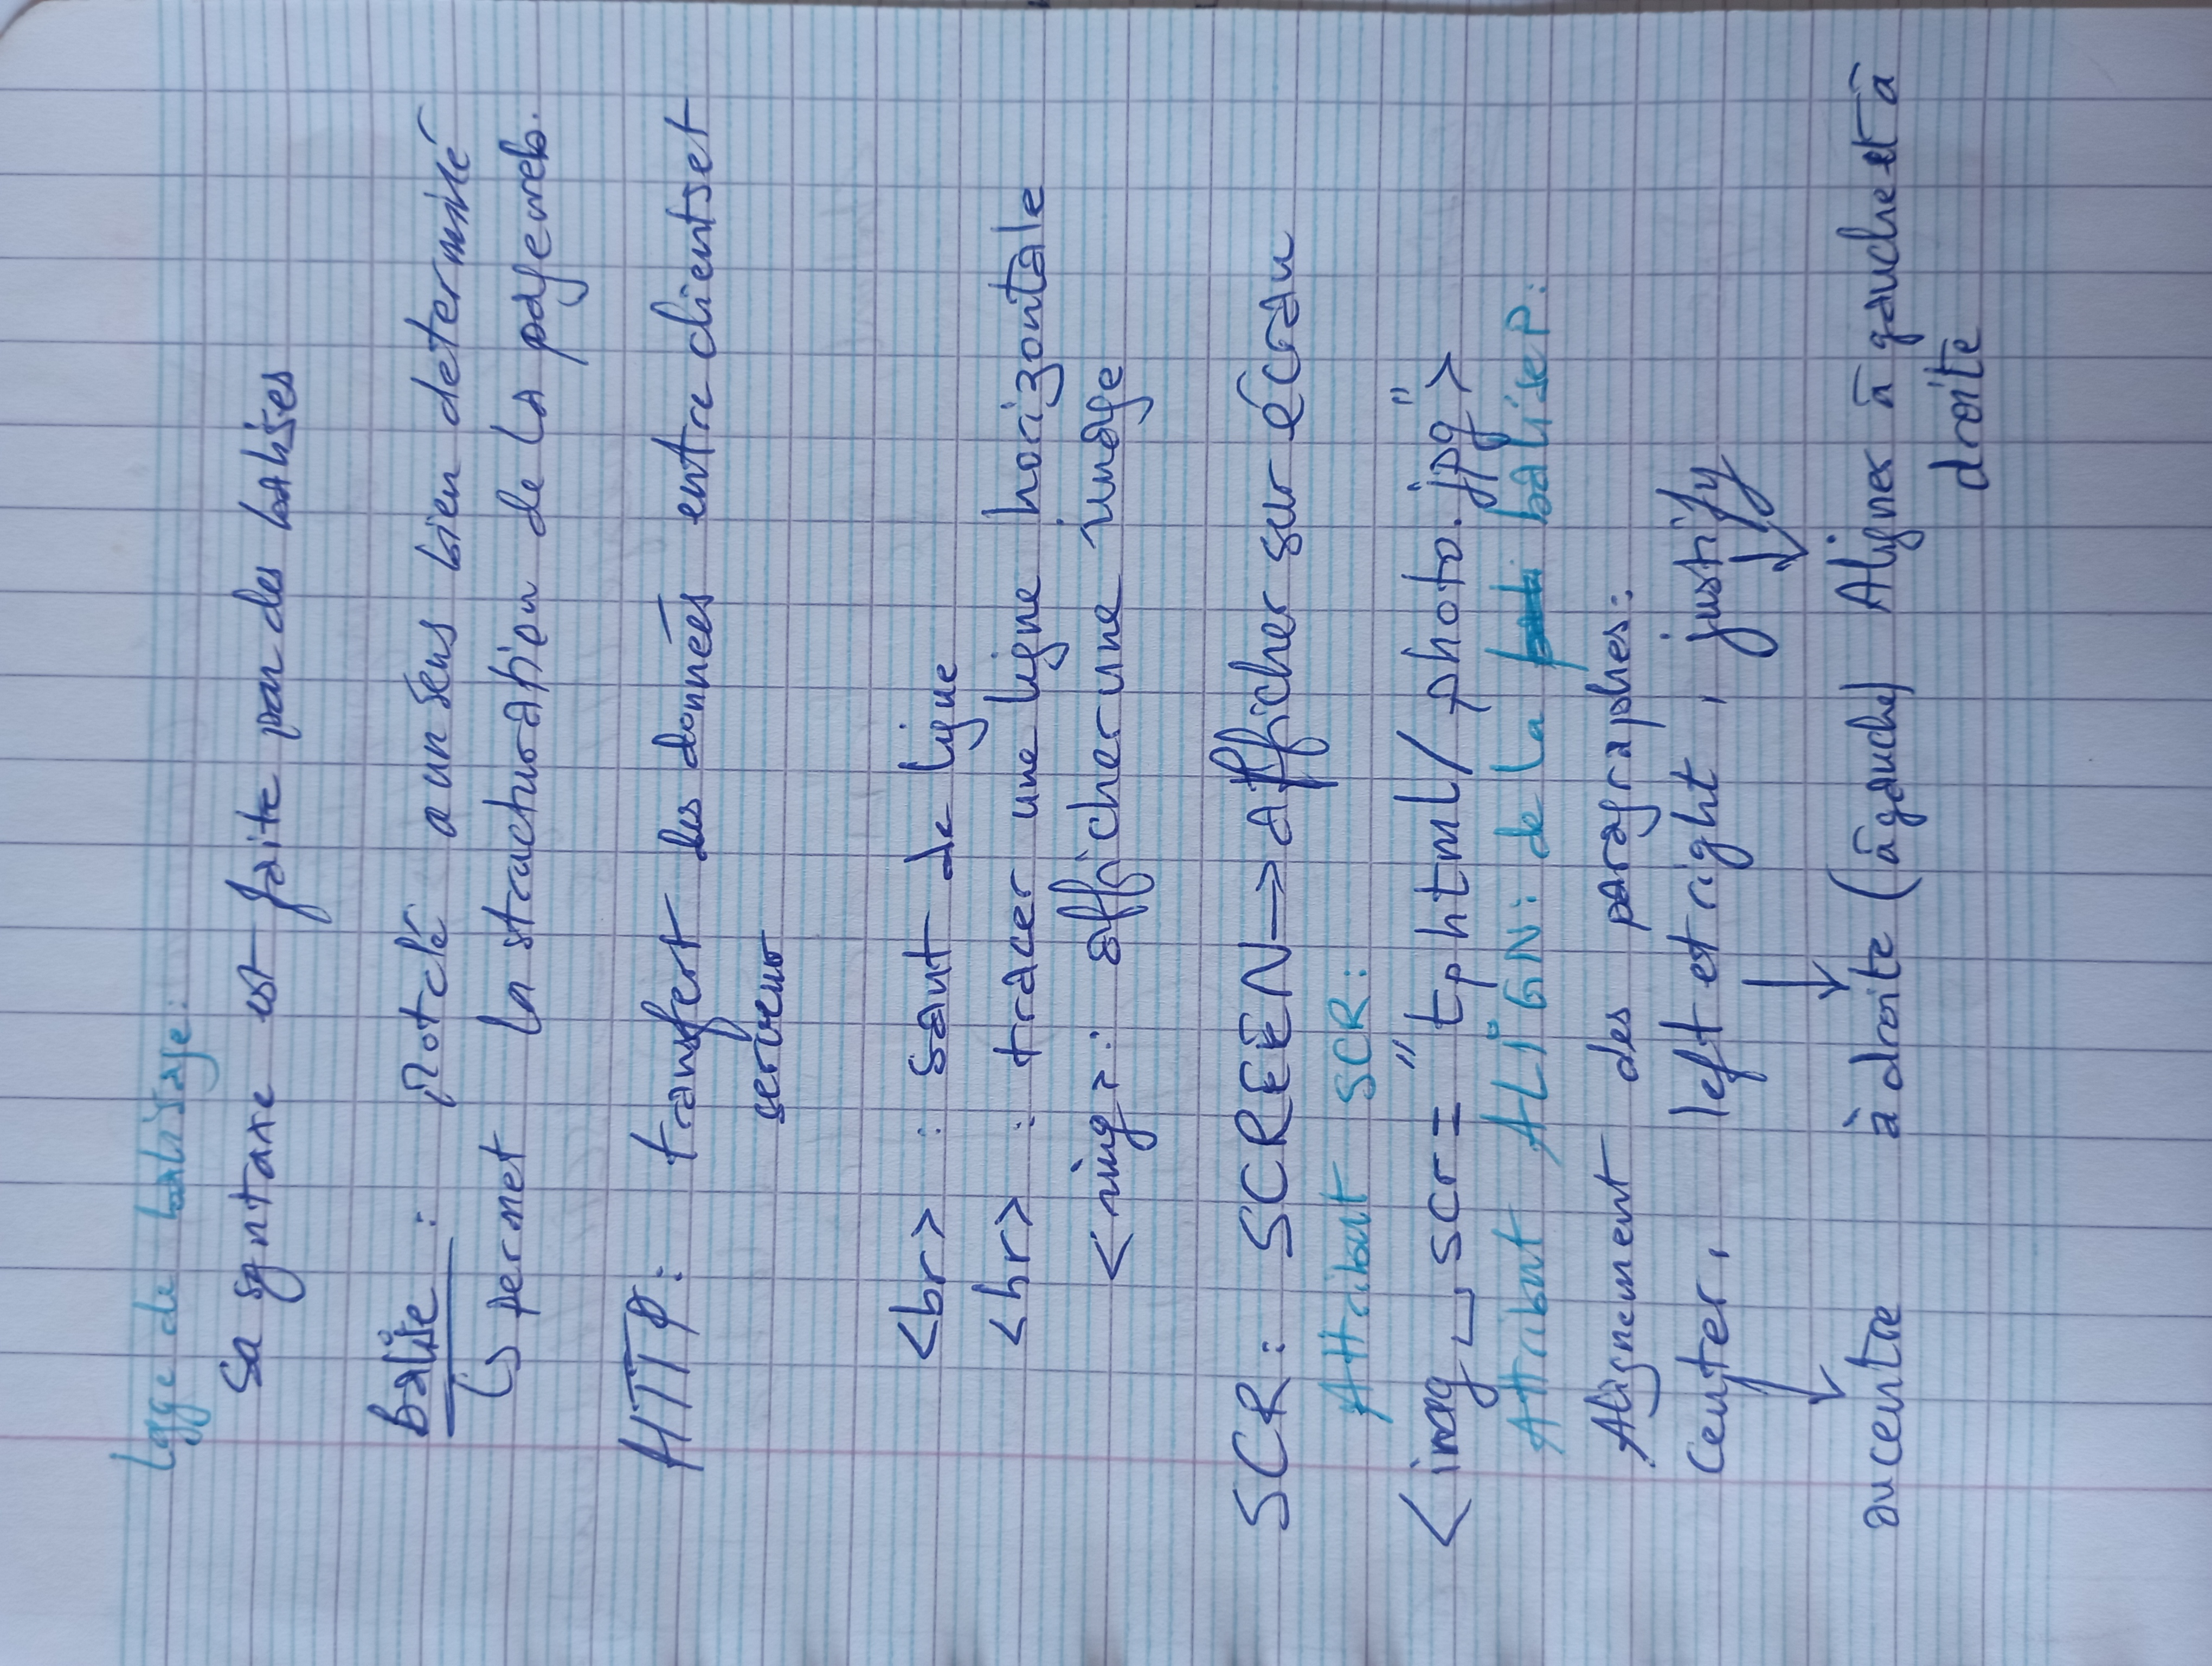 lgge de balisage:
Sa syntaxe est faite par des balises
balise : Motclé a un sens bien determiné
↳ permet la structuration de la page web.
HTTP: transfert des données entre clients et
serveur
<br> : saut de ligne
<hr> : tracer une ligne horizontale
<img>: afficher une image
SCR: SCREEN → afficher sur écran
Attribut SCR:
<imag␣scr = "tphtml/photo.jpg">
Attribut ALIGN: de la balise P:
Alignement des paragraphes:
center, left et right, justify
au centre à droite (à gauche) Aligner à gauche et à
droite